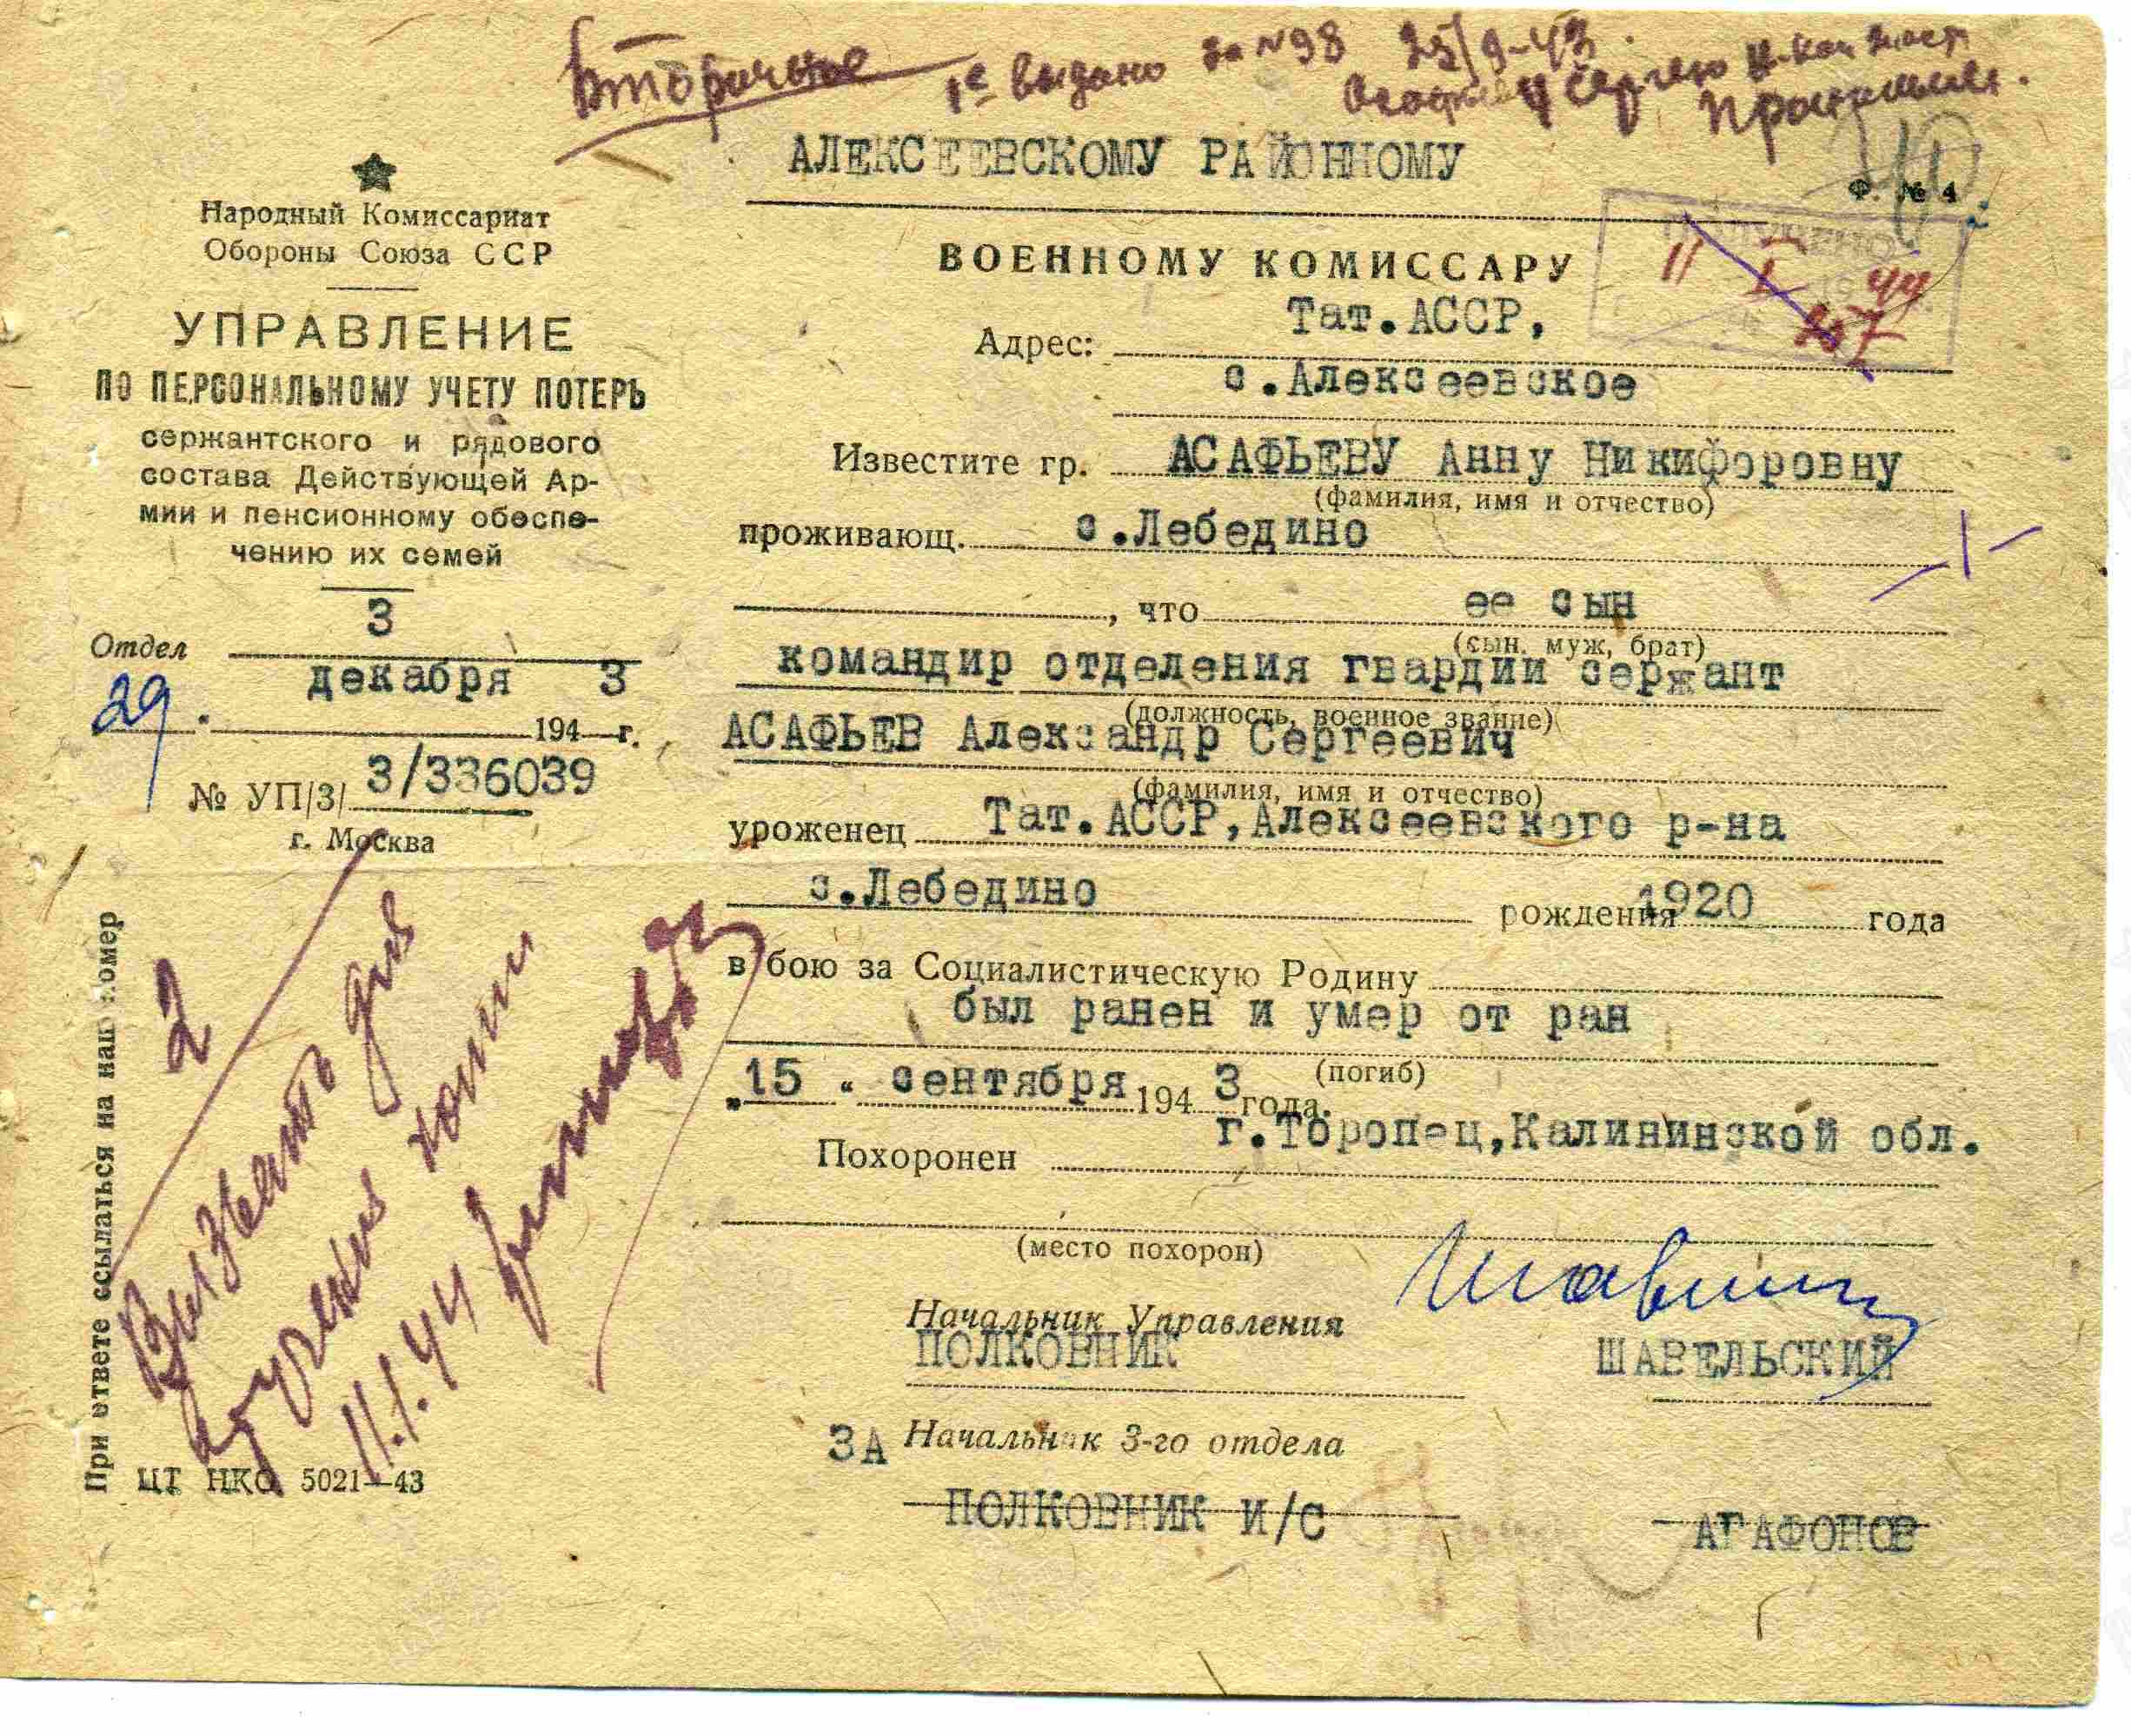 Вторичное 1е выдано за №98 25/9-43.
Сергею
АЛЕКСЕЕВСКОМУ РАЙОННОМУ
Ф. № 4
Народный Комиссариат
Обороны Союза ССР
УПРАВЛЕНИЕ
ПО ПЕРСОНАЛЬНОМУ УЧЕТУ ПОТЕРЬ
сержантского и рядового
состава Действующей Ар-
мии и пенсионному обеспе-
чению их семей
3
Отдел
29. декабря 3
194 г.
№ УП/3/ 3/336039
г. Москва
При ответе ссылаться на наш номер
2
Вызвать для
вручения
11.1.44
ЦТ НКО 5021—43
ВОЕННОМУ КОМИССАРУ
ПОЛУЧЕНО
11 I 1944
Адрес: Тат.АССР,
с.Алексеевское
Известите гр. АСАФЬЕВУ Анну Никифоровну
(фамилия, имя и отчество)
проживающ. с.Лебедино
, что ее сын
(сын, муж, брат)
командир отделения гвардии сержант
(должность, военное звание)
АСАФЬЕВ Александр Сергеевич
(фамилия, имя и отчество)
уроженец Тат.АССР,Алексеевского р-на
с.Лебедино рождения 1920 года
в бою за Социалистическую Родину
был ранен и умер от ран
(погиб)
„15 " сентября 194 3 года.
Похоронен г.Торопец,Калининской обл.
(место похорон)
Начальник Управления
ПОЛКОВНИК ШАВЕЛЬСКИЙ
ЗА Начальник 3-го отдела
ПОЛКОВНИК И/С АГАФОНОВ